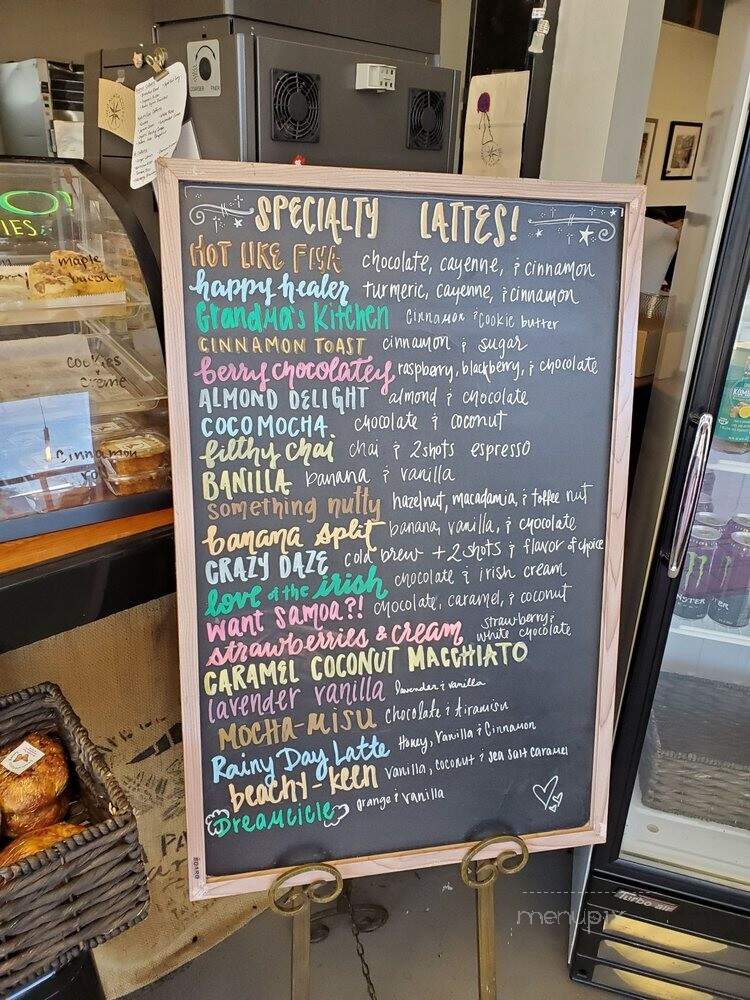 SPECIALTY LATTES!
HOT LIKE FIYA chocolate, cayenne, & cinnamon
happy healer turmeric, cayenne, & cinnamon
Grandma's Kitchen cinnamon & cookie butter
CINNAMON TOAST cinnamon & sugar
berry chocolatey raspberry, blackberry, & chocolate
ALMOND DELIGHT almond & chocolate
COCO MOCHA chocolate & coconut
filthy chai chai & 2 shots espresso
BANILLA banana & vanilla
something nutty hazelnut, macadamia, & toffee nut
banana split banana, vanilla, & chocolate
CRAZY DAZE cold brew + 2 shots & flavor of choice
love of the irish chocolate & irish cream
WANT SAMOA?! chocolate, caramel, & coconut
strawberries & cream strawberry & white chocolate
CARAMEL COCONUT MACCHIATO
lavender vanilla lavender & vanilla
MOCHA-MISU chocolate & tiramisu
Rainy Day Latte Honey, Vanilla & Cinnamon
beachy-keen vanilla, coconut & sea salt caramel
Dreamcicle orange & vanilla
maple bacon
cookies creme
Cinnamon
turbo air
menupix